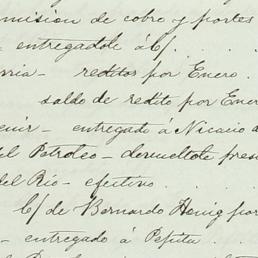 misión de cobro y portes
- entregadole á b/. . . .
rria - reditos por Enero .
saldo de redito por Ener
enir - entregado á Nicacio a
del Petroleo - devueltote pres
del Río - efectivo . . .
b/ de Bernardo Henig por
- entregado á Pepita . .